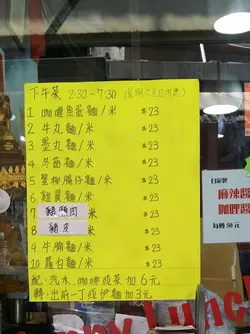 下午茶 2:30-7:30 (星期六及日供應)
1 咖喱魚蛋麵/米 $23
2 牛丸麵/米 $23
3 墨丸麵/米 $23
4 冬菇麵/米 $23
5 蟹柳腸仔麵/米 $23
6 雞翼麵/米 $23
7 豬頸肉 米 $23
8 豬皮 米 $23
9 牛腩麵/米 $23
10 蘿白麵/米 $23
配: 汽水 咖啡或茶加6元
轉: 出前一丁或伊麵加3元
自家製
麻辣醬
咖哩醬
每樽50元
Lunch